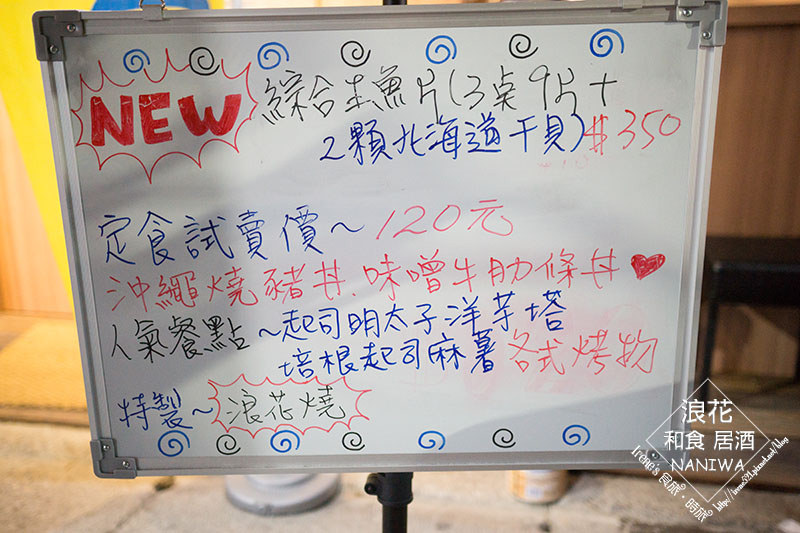 NEW 綜合生魚片(3桌9片+
2顆北海道干貝) $350
定食試賣價~120元
沖繩燒豬丼.味噌牛肋條丼♥
人氣餐點~起司明太子洋芋塔
培根起司麻薯 各式烤物
特製~浪花燒
浪花
和食 居酒
NANIWA
Irene's 食旅.時旅